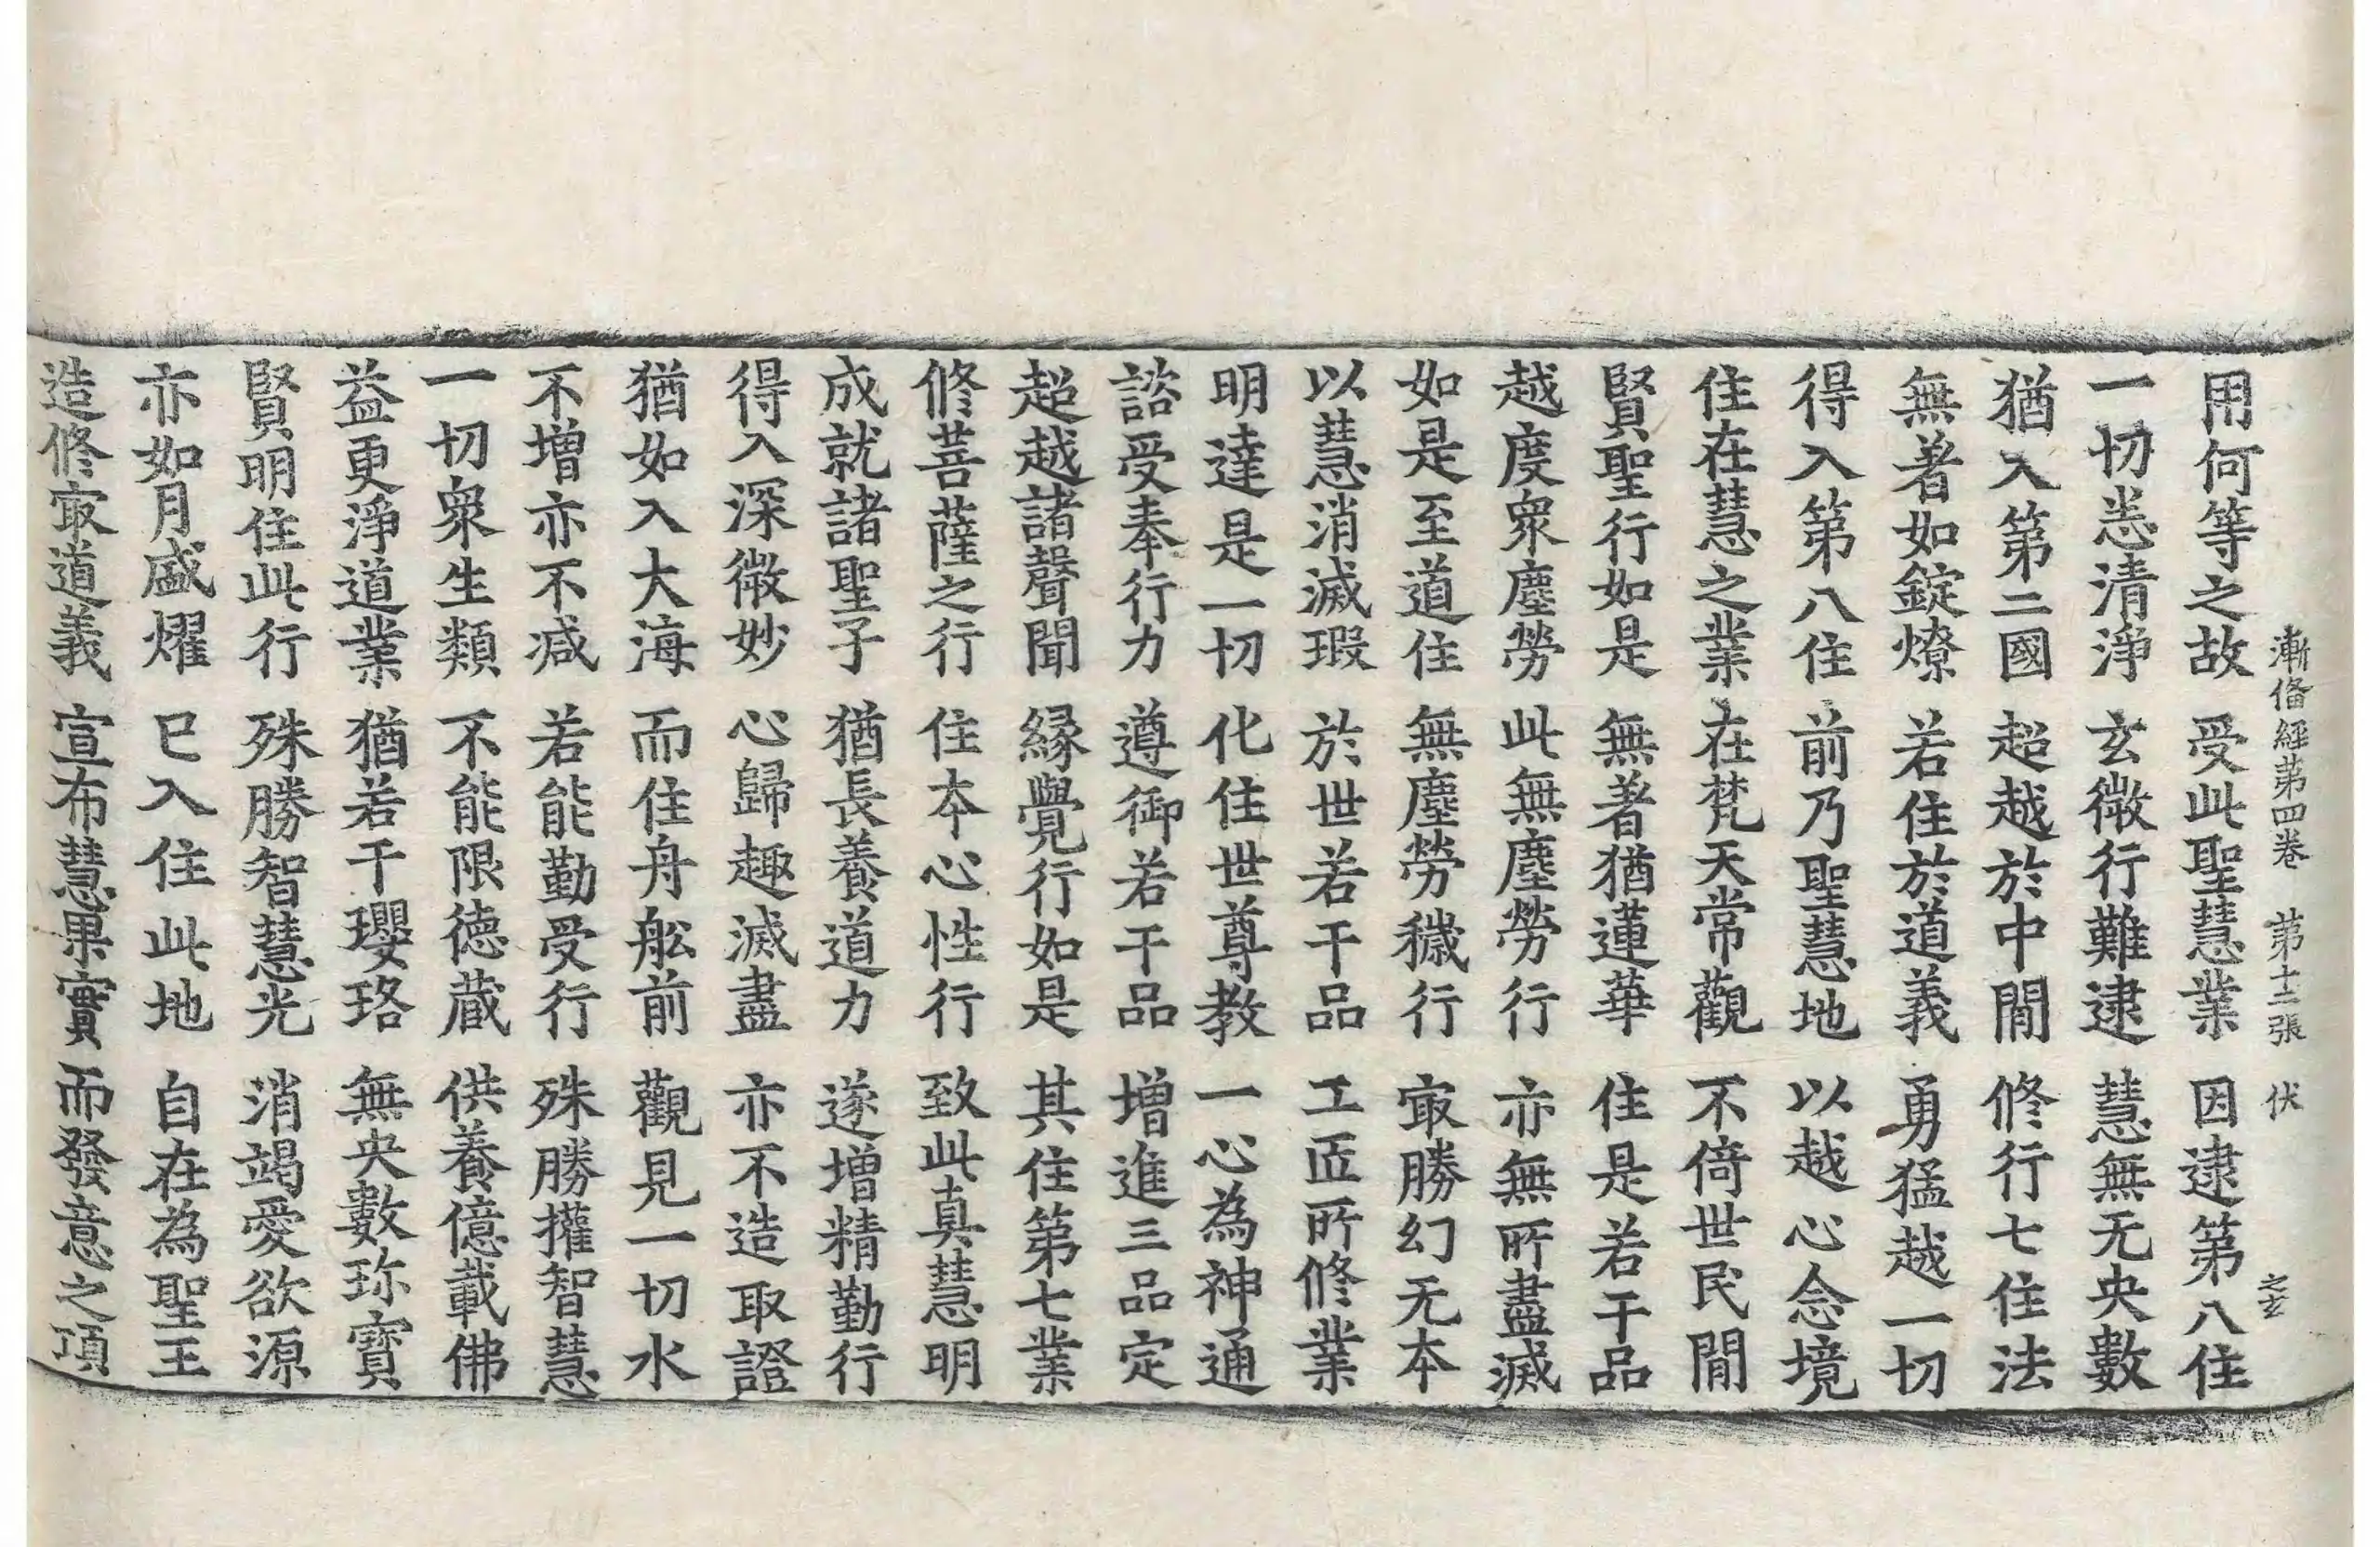 漸俻經第四卷 第十二張 伏
用何等之故 受此聖慧業 因逮第八住
一切悉清淨 玄微行難逮 慧無无央數
猶入第二國 超越於中閒 修行七住法
無著如錠燎 若住於道義 勇猛越一切
得入第八住 前乃聖慧地 以越心念境
住在慧之業 在梵天常觀 不倚世民閒
賢聖行如是 無著猶蓮華 住是若干品
越度衆塵勞 此無塵勞行 亦無所盡滅
如是至道住 無塵勞穢行 㝡勝幻无本
以慧消滅瑕 於世若干品 工匠所修業
明達是一切 化住世尊教 一心為神通
諮受奉行力 遵御若干品 增進三品定
超越諸聲聞 緣覺行如是 其住第七業
修菩薩之行 住本心性行 致此真慧明
成就諸聖子 猶長養道力 遂增精勤行
得入深微妙 心歸趣滅盡 亦不造取證
猶如入大海 而住舟舩前 觀見一切水
不增亦不減 若能勤受行 殊勝權智慧
一切衆生類 不能限德藏 供養億載佛
益更淨道業 猶若干瓔珞 無央數珎寶
賢明住此行 殊勝智慧光 消竭愛欲源
亦如月盛耀 已入住此地 自在為聖王
造修㝡道義 宣布慧果實 而發意之項